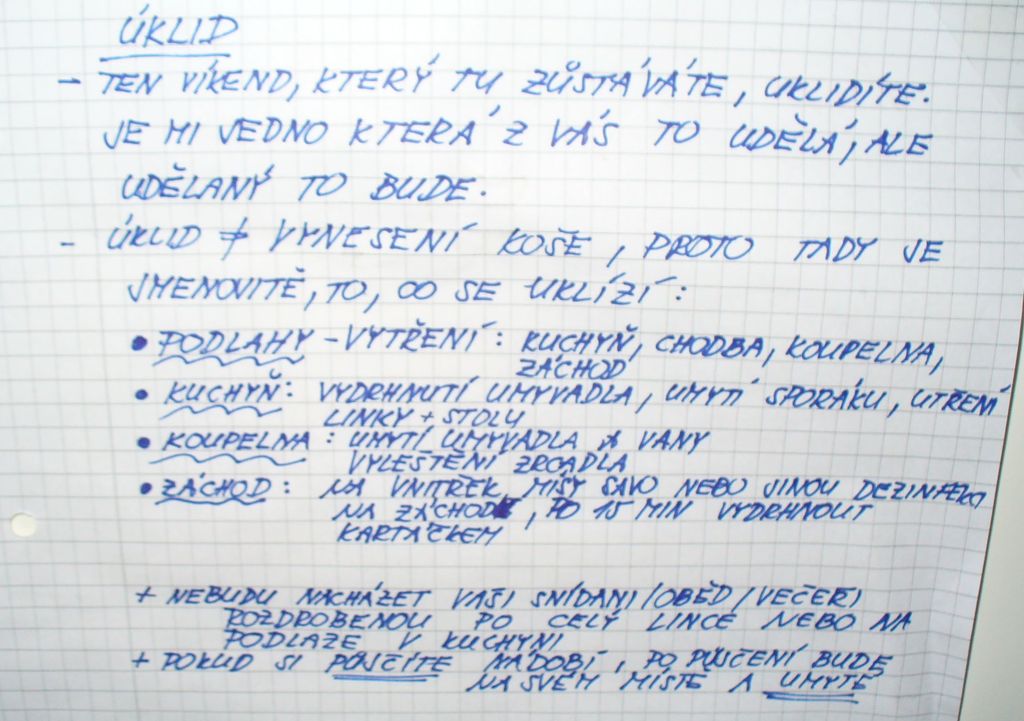 ÚKLID
- TEN VÍKEND, KTERÝ TU ZŮSTÁVÁTE, UKLIDÍTE.
JE MI JEDNO KTERÁ Z VÁS TO UDĚLÁ, ALE
UDĚLANÝ TO BUDE.
- ÚKLID ≠ VYNESENÍ KOŠE, PROTO TADY JE
JMENOVITĚ, TO, CO SE UKLÍZÍ:
• PODLAHY - VYTŘENÍ: KUCHYŇ, CHODBA, KOUPELNA,
ZÁCHOD
• KUCHYŇ: VYDRHNUTÍ UMYVADLA, UMYTÍ SPORÁKU, UTŘENÍ
LINKY + STOLU
• KOUPELNA: UMYTÍ UMYVADLA A VANY
VYLEŠTĚNÍ ZRCADLA
• ZÁCHOD: NA VNITŘEK MÍSY SAVO NEBO JINOU DEZINFEKCI
NA ZÁCHOD, PO 15 MIN VYDRHNOUT
KARTÁČKEM
+ NEBUDU NACHÁZET VAŠI SNÍDANI/OBĚD/VEČEŘI
ROZDROBENOU PO CELÝ LINCE NEBO NA
PODLAZE V KUCHYNI
+ POKUD SI PŮJČÍTE NÁDOBÍ, PO PŮJČENÍ BUDE
NA SVÉM MÍSTĚ A UMYTÉ